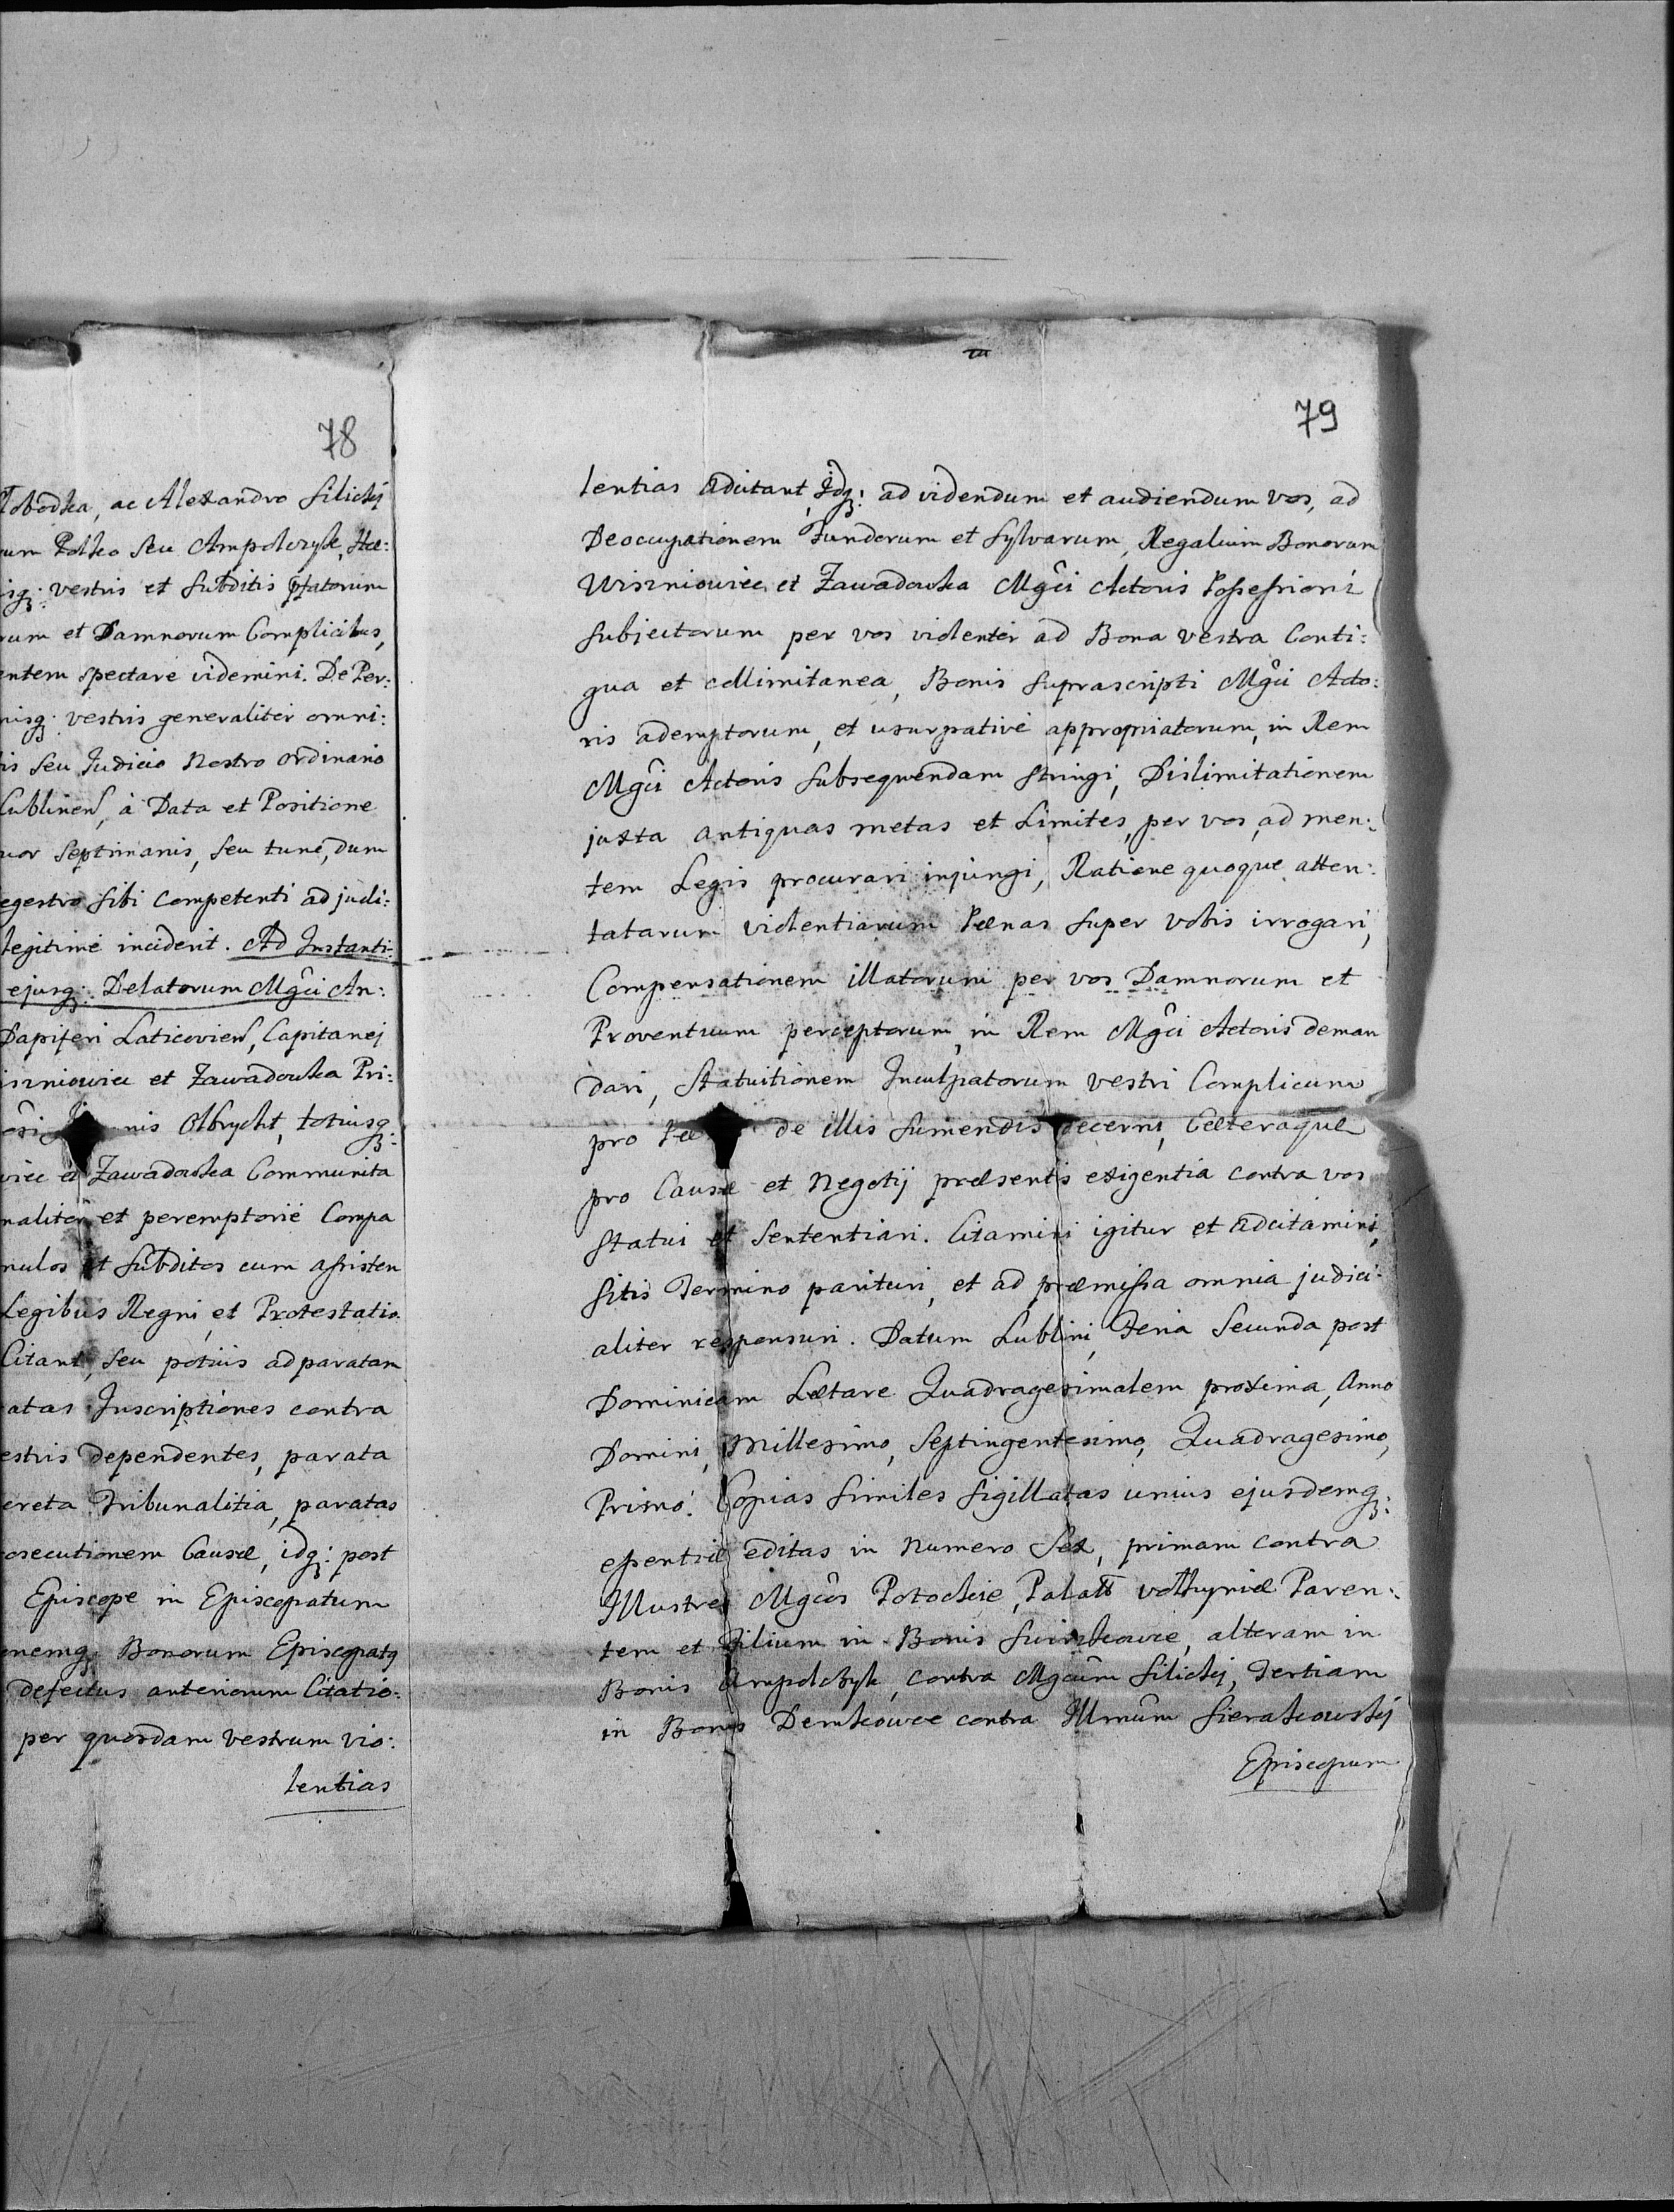 78
Slobodka, ac Alexandro Silickj
um Polko seu Ampolczyk, Hæ:
isq: vestris et Subditis pfatorum
rum et Damnorum Complicibus,
entem spectare videmini. De Per:
nisq: vestris generaliter omni:
is seu Judicio Nostro ordinario
Lublinen, à Data et Positione
uor Septimanis, seu tunc, dum
egestro sibi competenti ad judi:
legitime inciderit. Ad Instanti:
ejusq: Delatorum Mgci An:
Dapiferi Laticovien, Capitanej
iszniowiec et Zawadowka Pri:
nis Olbrycht, totiusq:
wiec et Zawadowka Communita
naliter et peremptorie Compa
mulos et Subditos cum assisten
Legibus Regni et Protestatio
Citant, seu potius ad paratam
atas Inscriptiones contra
estris dependentes, parata
ereta Tribunalitia, paratas
osecutionem Causæ, idq: post
Episcope in Episcopatum
nemq Bonorum Episcopatq
defectus anteriorum Citatio:
per quosdam vestrum vio:
lentias
79
lentias adcitant, Idq: ad videndum et audiendum vos, ad
Deoccupationem Fundorum et Sylvarum, Regalium Bonorum
Wiszniowiec et Zawadowka Mgci Actoris Possessioni
subjectorum per vos violenter ad Bona vestra Conti:
gua et collimitanea, Bonis suprascripti Mgci Acto:
ris ademptorum, et usurpative appropriatorum, in Rem
Mgci Actoris subsequendam stringi, Dislimitationem
juxta antiquas metas et Limites, per vos, ad men:
tem Legis procurari injungi, Ratione quoque atten:
tatarum violentiarum Pænas super vobis irrogari,
Compensationem illatorum per vos Damnorum et
Proventuum perceptorum, in Rem Mgci Actoris deman
dari, Statuitionem Inculpatorum vestri Complicum
pro de illis sumendis decerni, Cæteraque
pro Causæ et Negotij præsentis exigentia contra vos
statui et sententiari. Citamini igitur et adcitamini,
sitis Termino parituri, et ad præmissa omnia judici:
aliter responsuri. Datum Lublini, Feria Secunda post
Dominicam Lætare Quadragesimalem proxima, Anno
Domini, Millesimo, Septingentesimo, Quadragesimo,
Primo. Copias similes sigillatas unius ejusdemq:
essentiæ editas in Numero Sex, primam contra
Illustres Mgcos Potockie, Palatt Volhyniæ Paren:
tem et Filium in Bonis Swirzkowce, alteram in
Bonis Ampolczyk, contra Mgcum Silickj, Tertiam
in Bonis Demkowce contra Illmum Sierakowskj
Episcopum